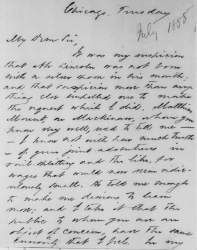 Chicago, Tuesday
July 1858
My Dear Sir,
It was my suspicion
that Mr Lincoln was not born
with a silver spoon in his mouth;
and that suspicion more than any
thing else impelled me to make
the request which I did. Matthew
Mount, or Martineau, whom you
know very well, used to tell me
I know not with how much truth
of your joint adventures in
rail splitting and the like, for
wages that would now seem ridic-
ulously small. He told me enough
to make me desire to learn
more; and I take it that the
public to whom you are an
object of concern, have the same
curiosity that I feel. In my